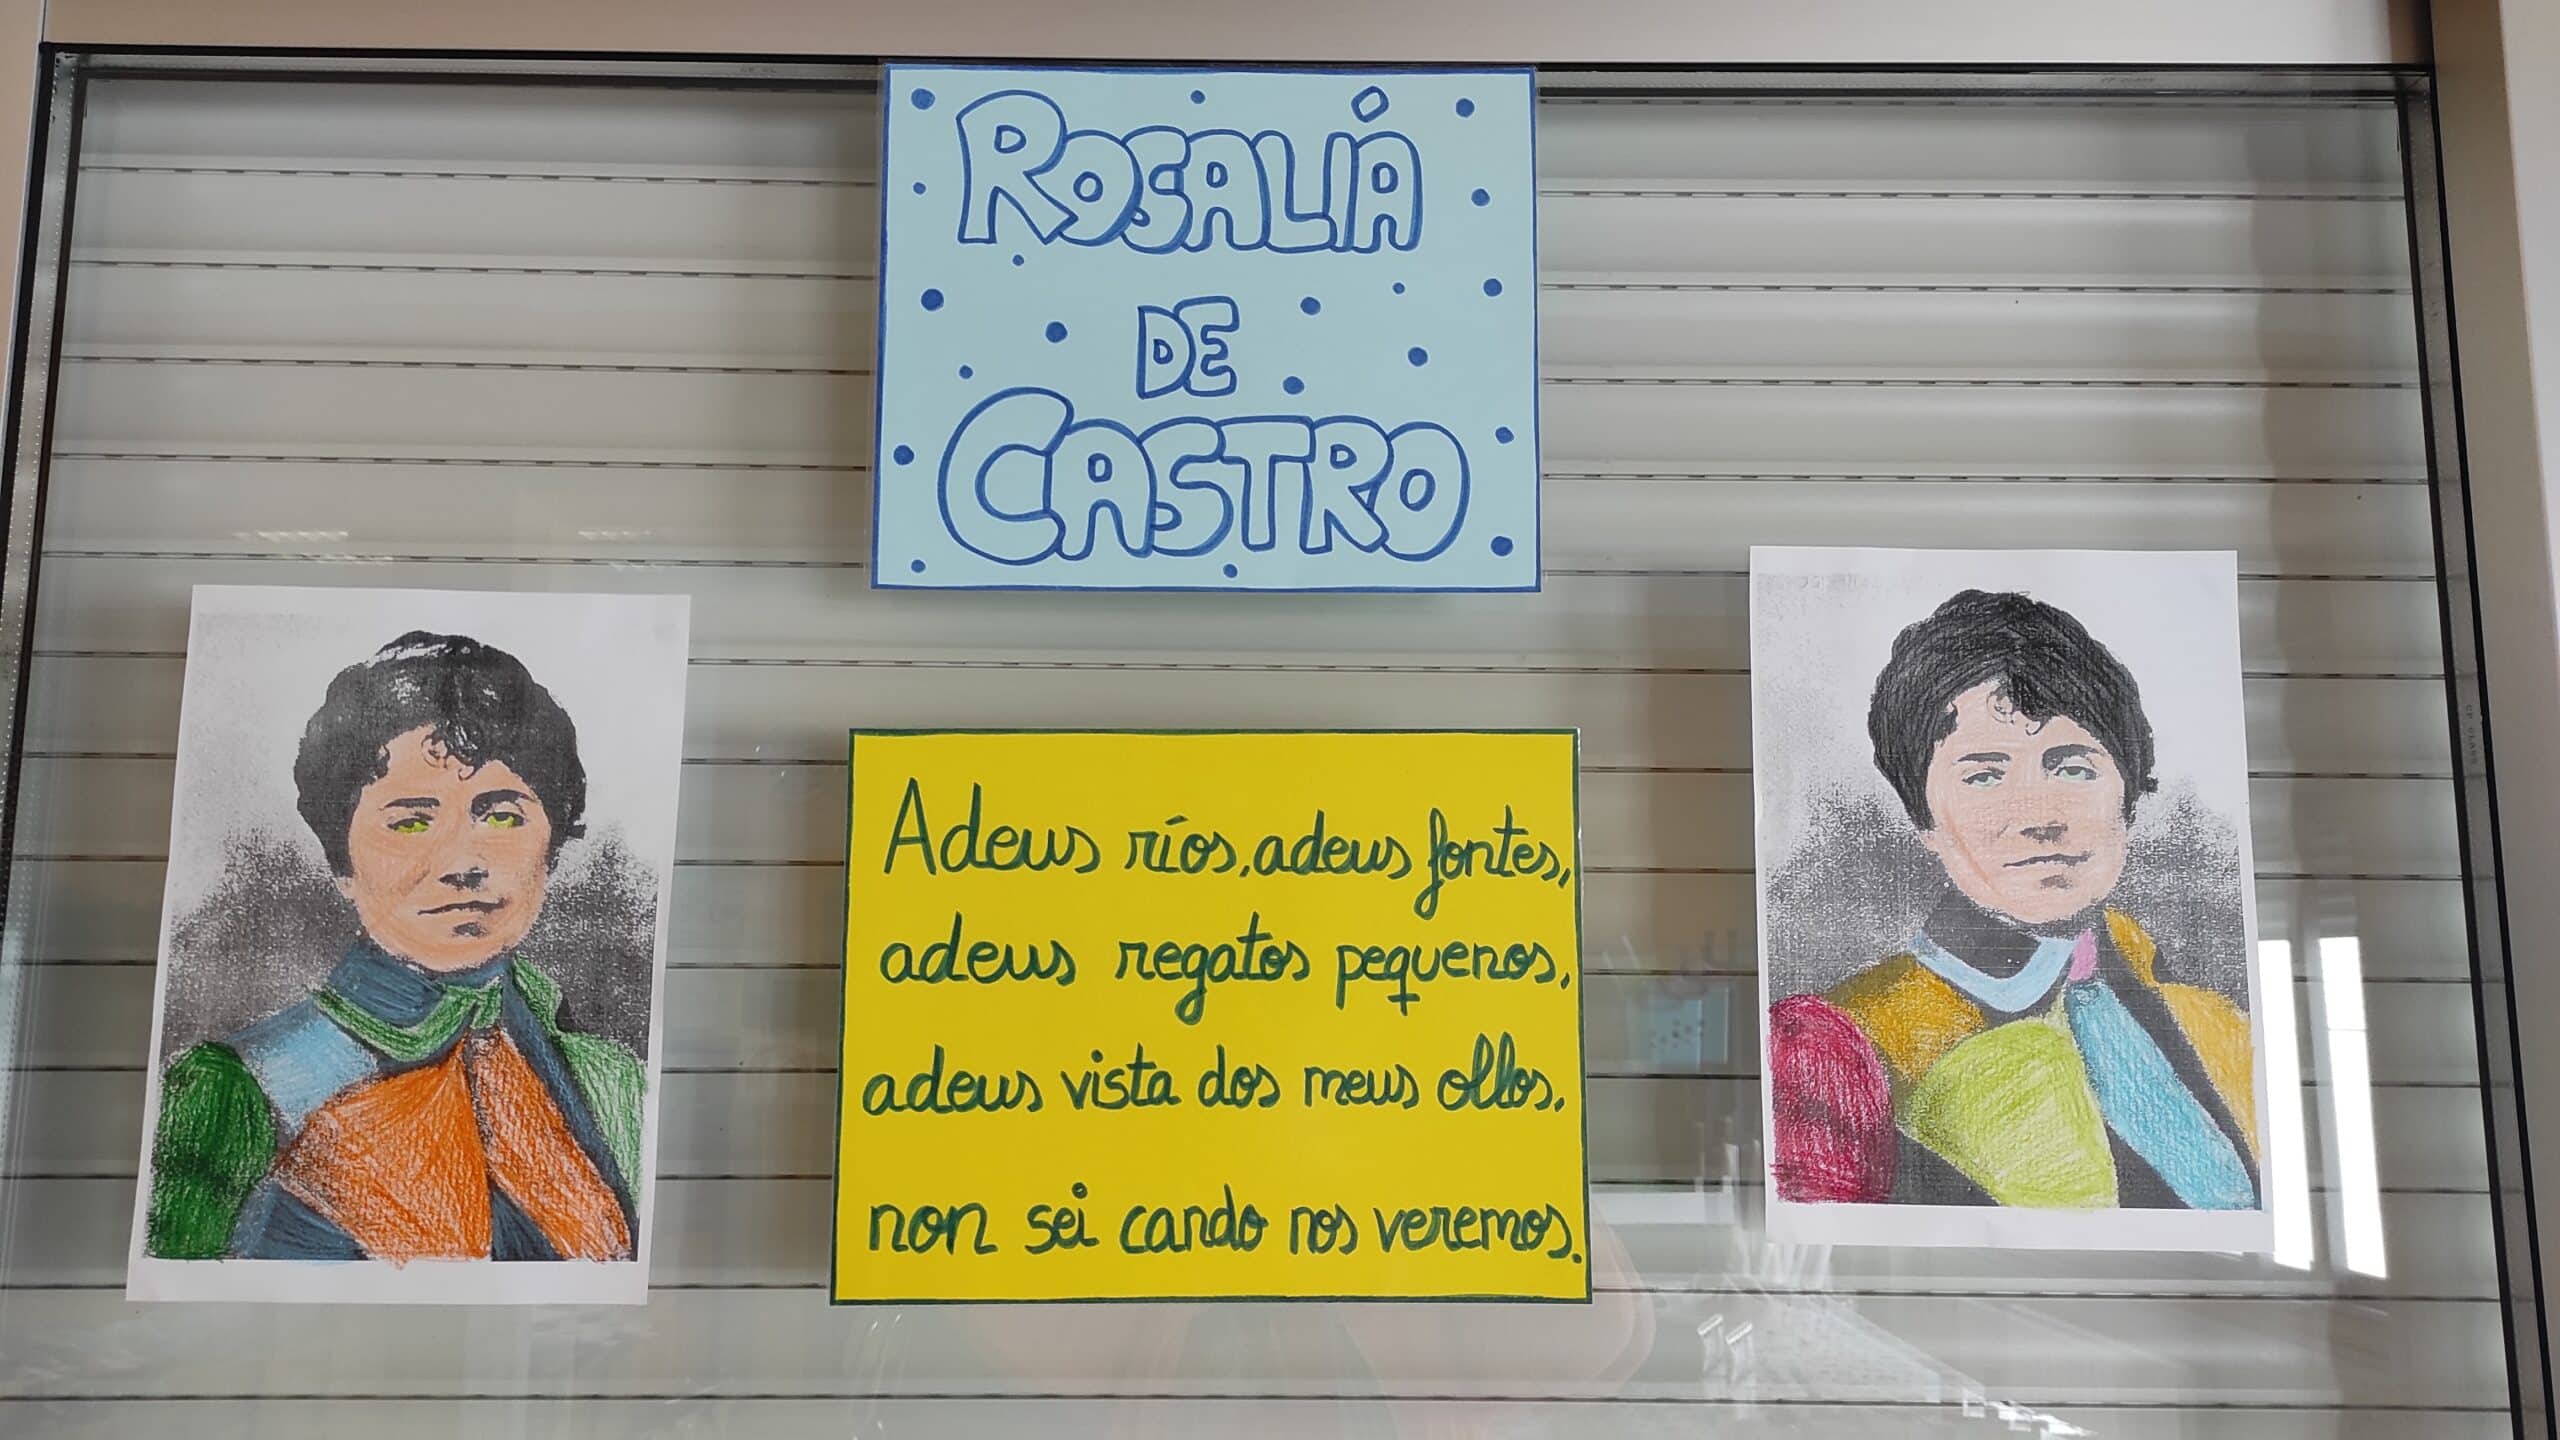 ROSALIÁ
DE
CASTRO
Adeus ríos, adeus fontes,
adeus regatos pequenos,
adeus vista dos meus ollos,
non sei cando nos veremos.